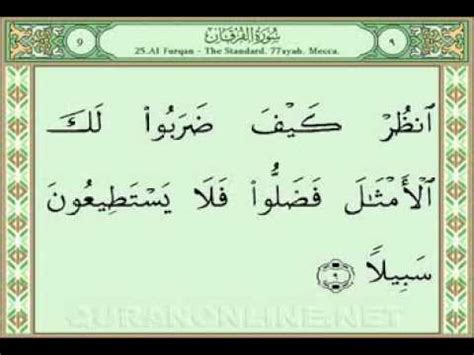 9 سُورَةُ الفُرْقَان ٩
25.Al Furqan - The Standard. 77ayah. Mecca.
ٱنظُرْ كَيْفَ ضَرَبُوا۟ لَكَ
ٱلْأَمْثَٰلَ فَضَلُّوا۟ فَلَا يَسْتَطِيعُونَ
سَبِيلًا ٩
QURANONLINE.NET